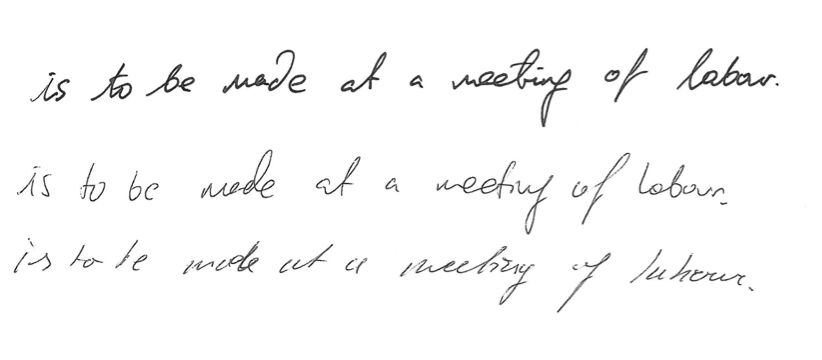 is to be made at a meeting of labour.
is to be made at a meeting of labour.
is to be made at a meeting of labour.